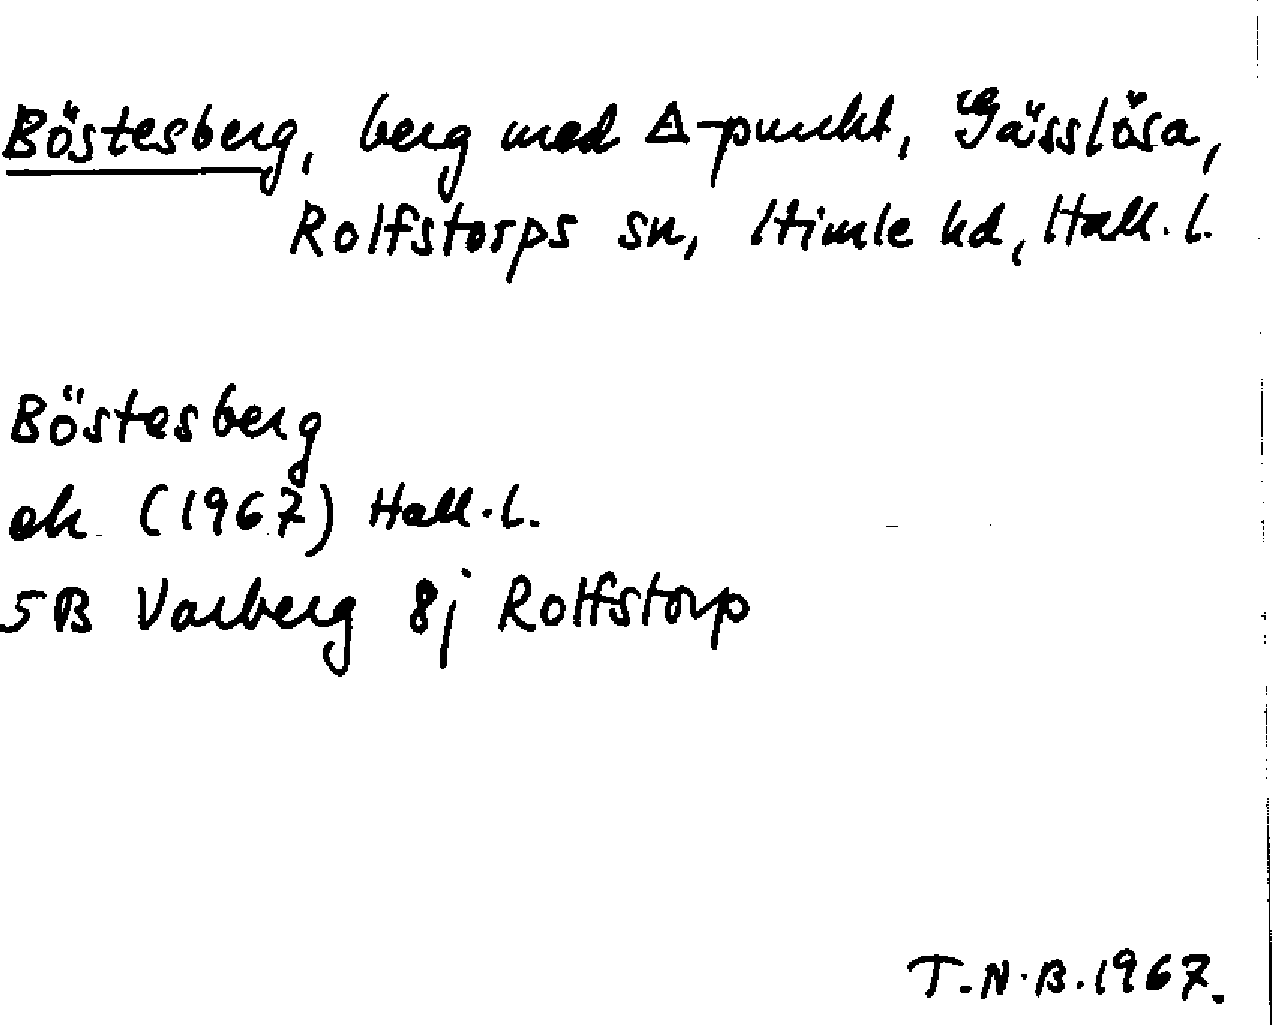 Böstesberg, berg med Δ-punkt, Gässlösa,
Rolfstorps sn, Himle hd, Hall. l.
Böstesberg
ek (1967) Hall. l.
5B Varberg 8j Rolfstorp
T.N.B. 1967.